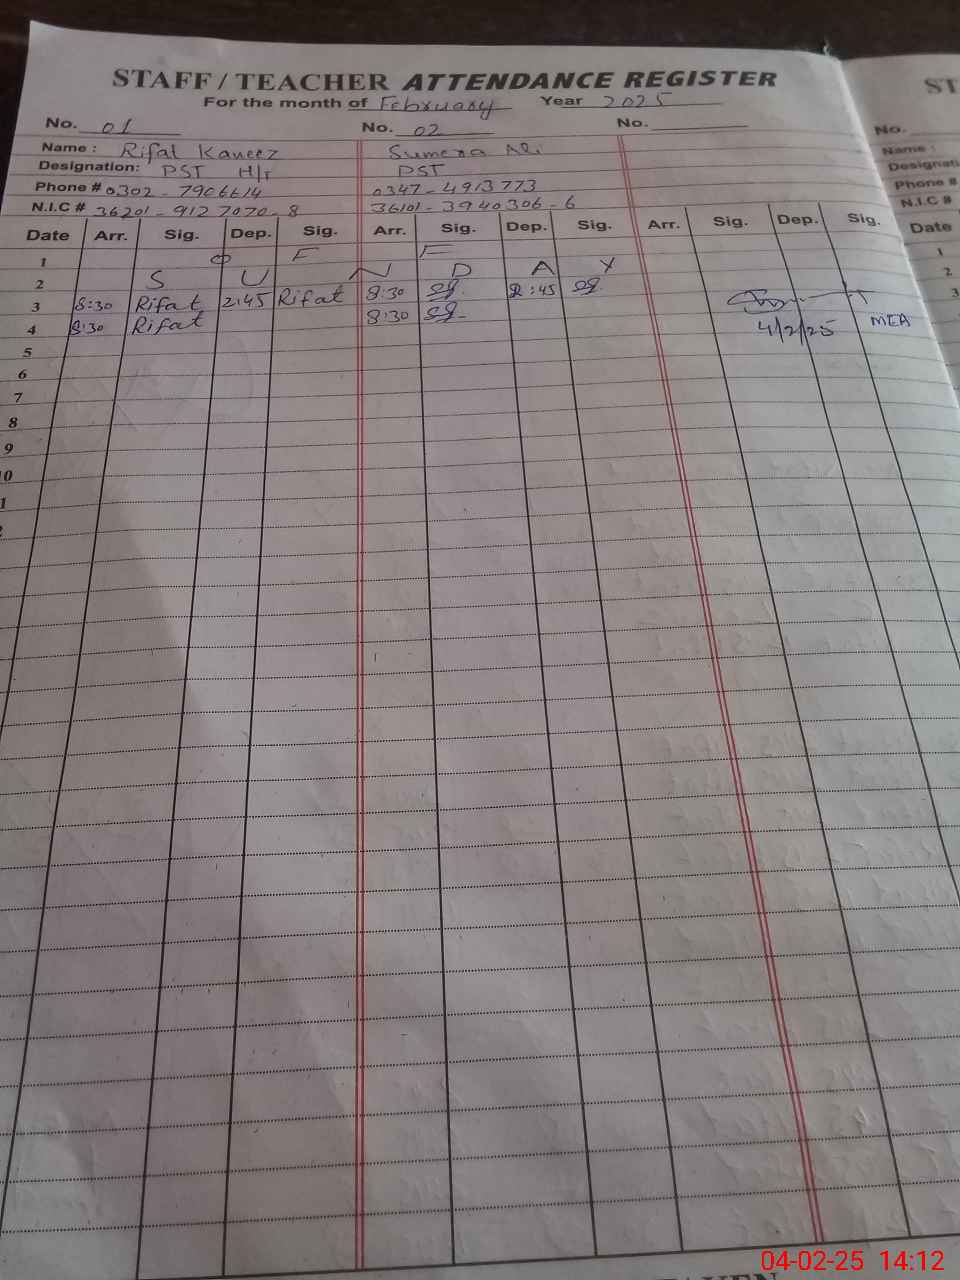 STAFF / TEACHER ATTENDANCE REGISTER
For the month of February Year 2025
No. 01 No. 02 No.
Name : Rifat Kaneez Sumera Ali
Designation: PST H/r PST
Phone # 0302 - 7906614 0347 - 4913773
N.I.C # 36201 - 9127070 - 8 36101 - 3940306 - 6
Date Arr. Sig. Dep. Sig. Arr. Sig. Dep. Sig. Arr. Sig. Dep. Sig.
1 O F F
2 S U N D A Y
3 8:30 Rifat 2:45 Rifat 8:30 2:45
4 8:30 Rifat 8:30
4/2/25 MEA
5
6
7
8
9
10
ST
No.
Name :
Designati
Phone #
N.I.C #
Date
1
2
3
04-02-25 14:12